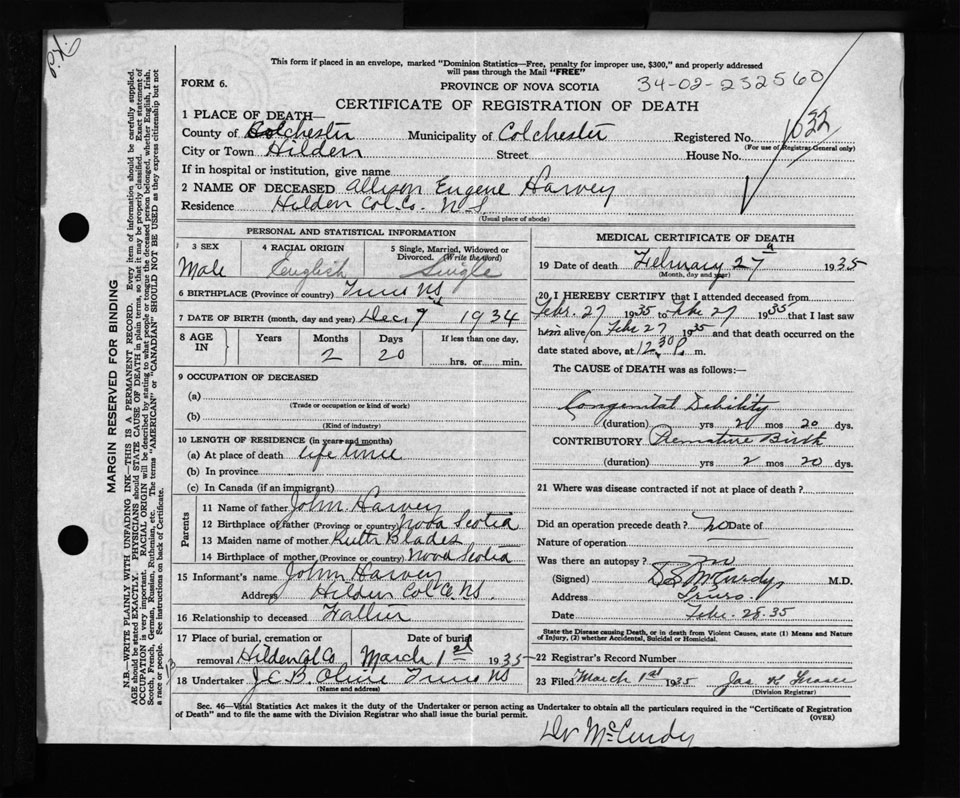 P.X.
This form if placed in an envelope, marked "Dominion Statistics—Free, penalty for improper use, $300," and properly addressed
will pass through the Mail "FREE"
FORM 6.
PROVINCE OF NOVA SCOTIA
34-02-232560
CERTIFICATE OF REGISTRATION OF DEATH
1 PLACE OF DEATH—
County of Colchester Municipality of Colchester Registered No. 1032
(For use of Registrar General only)
City or Town Hilden Street House No.
If in hospital or institution, give name
2 NAME OF DECEASED Allison Eugene Harvey
Residence Hilden Col. Co. N.S.
(Usual place of abode)
PERSONAL AND STATISTICAL INFORMATION
3 SEX 4 RACIAL ORIGIN 5 Single, Married, Widowed or
Divorced. (Write the word)
Male English Single
6 BIRTHPLACE (Province or country) Truro NS
7 DATE OF BIRTH (month, day and year) Dec 7 1934
8 AGE IN Years Months Days If less than one day,
2 20 hrs. or min.
9 OCCUPATION OF DECEASED
(a)
(Trade or occupation or kind of work)
(b)
(Kind of industry)
10 LENGTH OF RESIDENCE (in years and months)
(a) At place of death life time
(b) In province
(c) In Canada (if an immigrant)
Parents
11 Name of father John Harvey
12 Birthplace of father (Province or country) Nova Scotia
13 Maiden name of mother Ruth Blades
14 Birthplace of mother (Province or country) Nova Scotia
15 Informant's name John Harvey
Address Hilden Col. Co. NS.
16 Relationship to deceased Father
17 Place of burial, cremation or Date of burial
removal Hilden Col Co March 1st 1935
18 Undertaker Truro NS
(Name and address)
MEDICAL CERTIFICATE OF DEATH
19 Date of death February 27 1935
(Month, day and year)
20 I HEREBY CERTIFY that I attended deceased from
Febr. 27 1935 to Feb. 27 1935 that I last saw
him alive on Feb. 27 1935 and that death occurred on the
date stated above, at 12.30 P. m.
The CAUSE of DEATH was as follows:—
Congenital Debility
(duration) yrs 2 mos 20 dys.
CONTRIBUTORY Premature Birth
(duration) yrs 2 mos 20 dys.
21 Where was disease contracted if not at place of death?
Did an operation precede death? No Date of
Nature of operation
Was there an autopsy? No
(Signed) McCurdy M.D.
Address Truro.
Date Feb. 28.35
State the Disease causing Death, or in death from Violent Causes, state (1) Means and Nature
of Injury, (2) whether Accidental, Suicidal or Homicidal.
22 Registrar's Record Number
23 Filed March 1st 1935 Jas Fraser
(Division Registrar)
Sec. 46—Vital Statistics Act makes it the duty of the Undertaker or person acting as Undertaker to obtain all the particulars required in the "Certificate of Registration
of Death" and to file the same with the Division Registrar who shall issue the burial permit.
(OVER)
Dr McCurdy
MARGIN RESERVED FOR BINDING
N.B.—WRITE PLAINLY WITH UNFADING INK—THIS IS A PERMANENT RECORD. Every item of information should be carefully supplied.
AGE should be stated EXACTLY. PHYSICIANS should state CAUSE OF DEATH in plain terms, so that it may be properly classified. Exact statement of
OCCUPATION is very important. RACIAL ORIGIN will be described by stating to what people or tongue the deceased person belonged, whether English, Irish,
Scotch, French, German, Russian, Ruthenian, etc. The terms "AMERICAN" or "CANADIAN" SHOULD NOT BE USED as they express citizenship but not
a race or people. See instructions on back of Certificate.